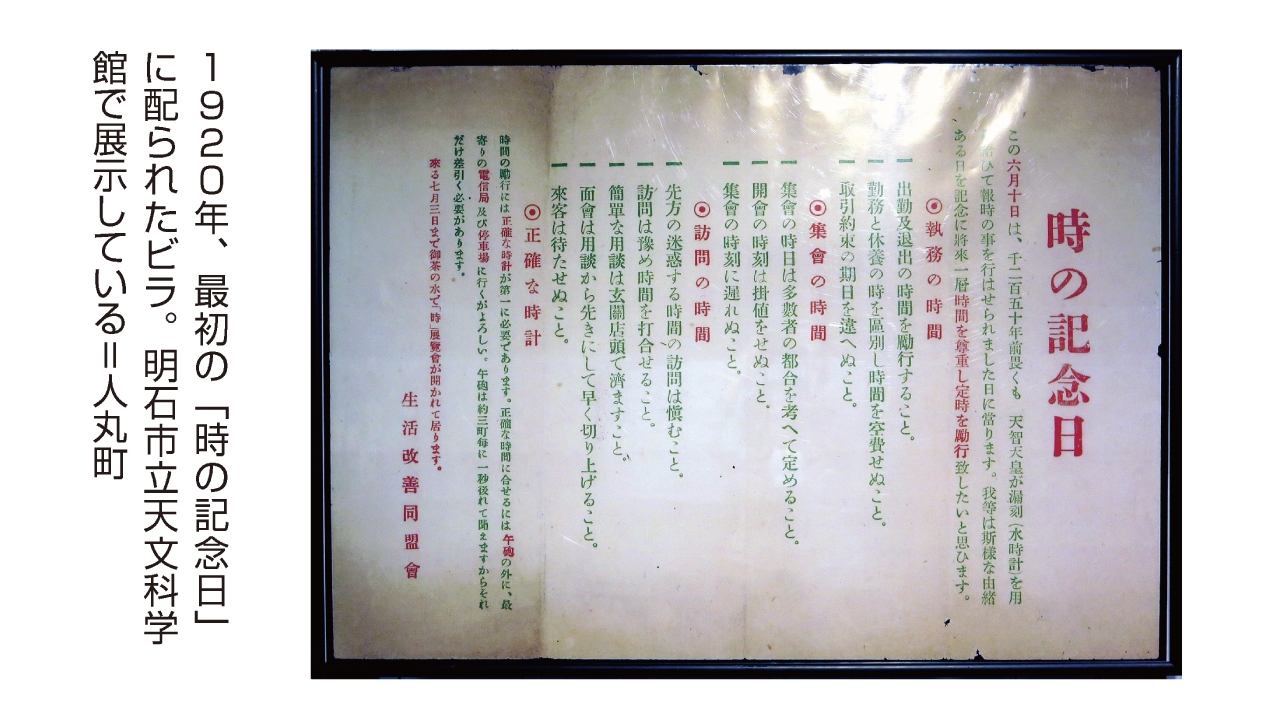 時の記念日
この六月十日は、千二百五十年前畏くも 天智天皇が漏刻(水時計)を用
ひて報時の事を行はせられました日に當ります。我等は斯樣な由緒
ある日を記念に將來一層時間を尊重し定時を勵行致したいと思ひます。
◉執務の時間
一 出勤及退出の時間を勵行すること。
一 勤務と休養の時を區別し時間を空費せぬこと。
一 取引約束の期日を違へぬこと。
◉集會の時間
一 集會の時日は多數者の都合を考へて定めること。
一 開會の時刻は掛値をせぬこと。
一 集會の時刻に遲れぬこと。
◉訪問の時間
一 先方の迷惑する時間の訪問は愼むこと。
一 訪問は豫め時間を打合せること。
一 簡單な用談は玄關店頭で濟ますこと。
一 面會は用談から先きにして早く切り上げること。
一 來客は待たせぬこと。
◉正確な時計
時間の勵行には正確な時計が第一に必要であります。正確な時間に合せるには午砲の外に、最
寄りの電信局及び停車場に行くがよろしい。午砲は約三町每に一秒後れて聞えますからそれ
だけ差引く必要があります。
來る七月三日まで御茶の水で「時」展覽會が開かれて居ります。
生活改善同盟會
1920年、最初の「時の記念日」
に配られたビラ。明石市立天文科学
館で展示している＝人丸町